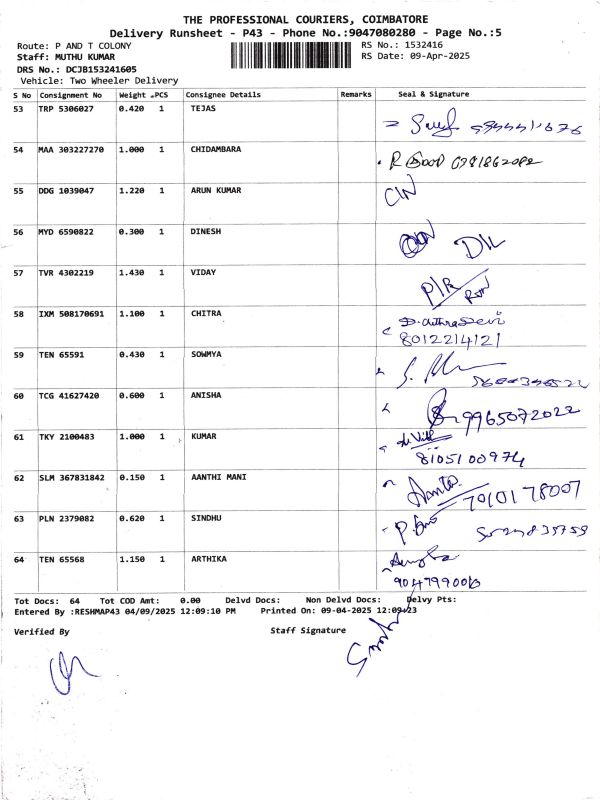 THE PROFESSIONAL COURIERS, COIMBATORE
Delivery Runsheet - P43 - Phone No.:9047080280 - Page No.:5
Route: P AND T COLONY RS No.: 1532416
Staff: MUTHU KUMAR RS Date: 09-Apr-2025
DRS No.: DCJB153241605
Vehicle: Two Wheeler Delivery
S No Consignment No Weight .PCS Consignee Details Remarks Seal & Signature
53 TRP 5306027 0.420 1 TEJAS
54 MAA 303227270 1.000 1 CHIDAMBARA
55 DDG 1039047 1.220 1 ARUN KUMAR
56 MYD 6590822 0.300 1 DINESH
57 TVR 4302219 1.430 1 VIDAY
P/R
58 IXM 508170691 1.100 1 CHITRA
8012214121
59 TEN 65591 0.430 1 SOWMYA
60 TCG 41627420 0.600 1 ANISHA
9965072022
61 TKY 2100483 1.000 1 KUMAR
8105100974
62 SLM 367831842 0.150 1 AANTHI MANI
7010178007
63 PLN 2379082 0.620 1 SINDHU
64 TEN 65568 1.150 1 ARTHIKA
Tot Docs: 64 Tot COD Amt: 0.00 Delvd Docs: Non Delvd Docs: Delvy Pts:
Entered By :RESHMAP43 04/09/2025 12:09:10 PM Printed On: 09-04-2025 12:09:23
Verified By Staff Signature